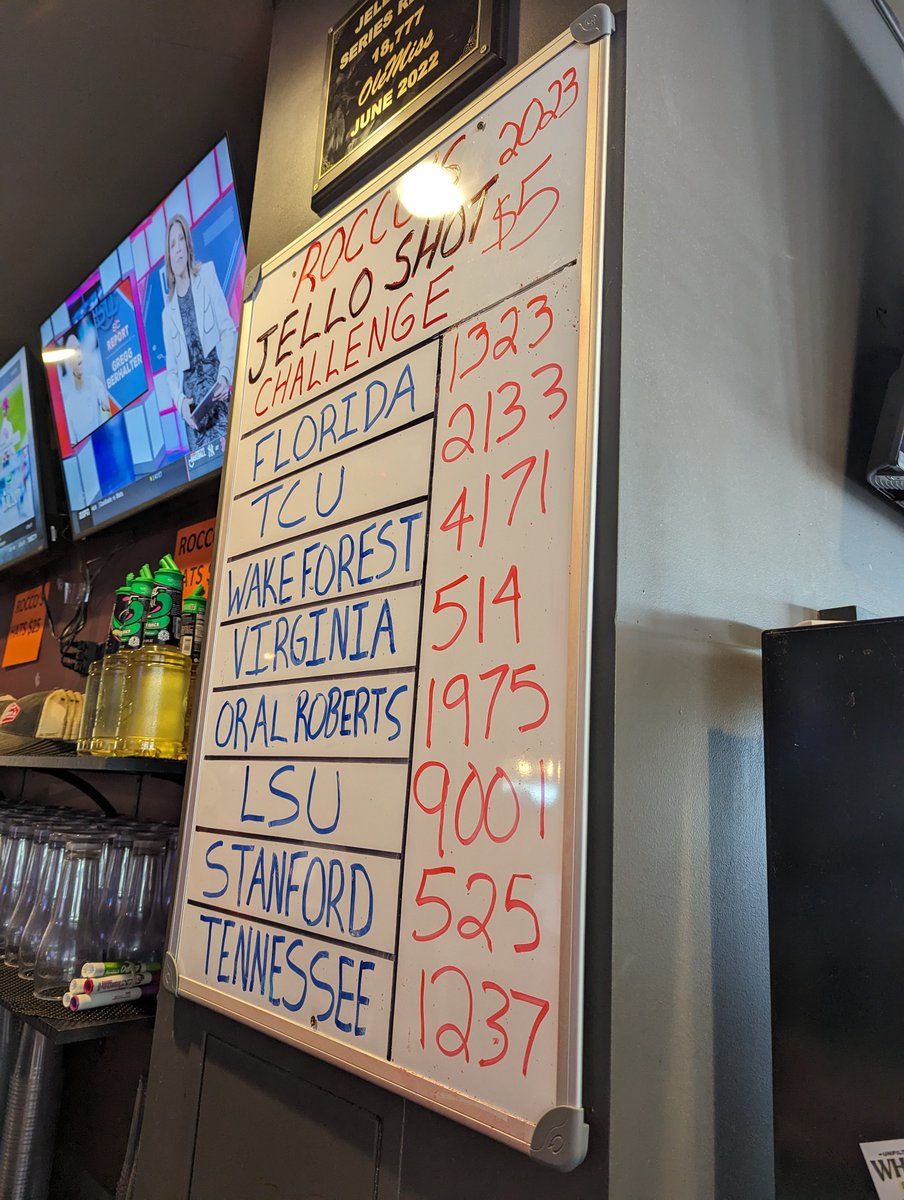 JELL
SERIES R
18,777
Ole Miss
JUNE 2022
ROCCO'S 2023
JELLO SHOT $5
CHALLENGE
FLORIDA 1323
TCU 2133
WAKE FOREST 4171
VIRGINIA 514
ORAL ROBERTS 1975
LSU 9001
STANFORD 525
TENNESSEE 1237
REPORT
GREGG
BERHALTER
ROCCO'S
HATS $25
ROCCO
ATS $
WH